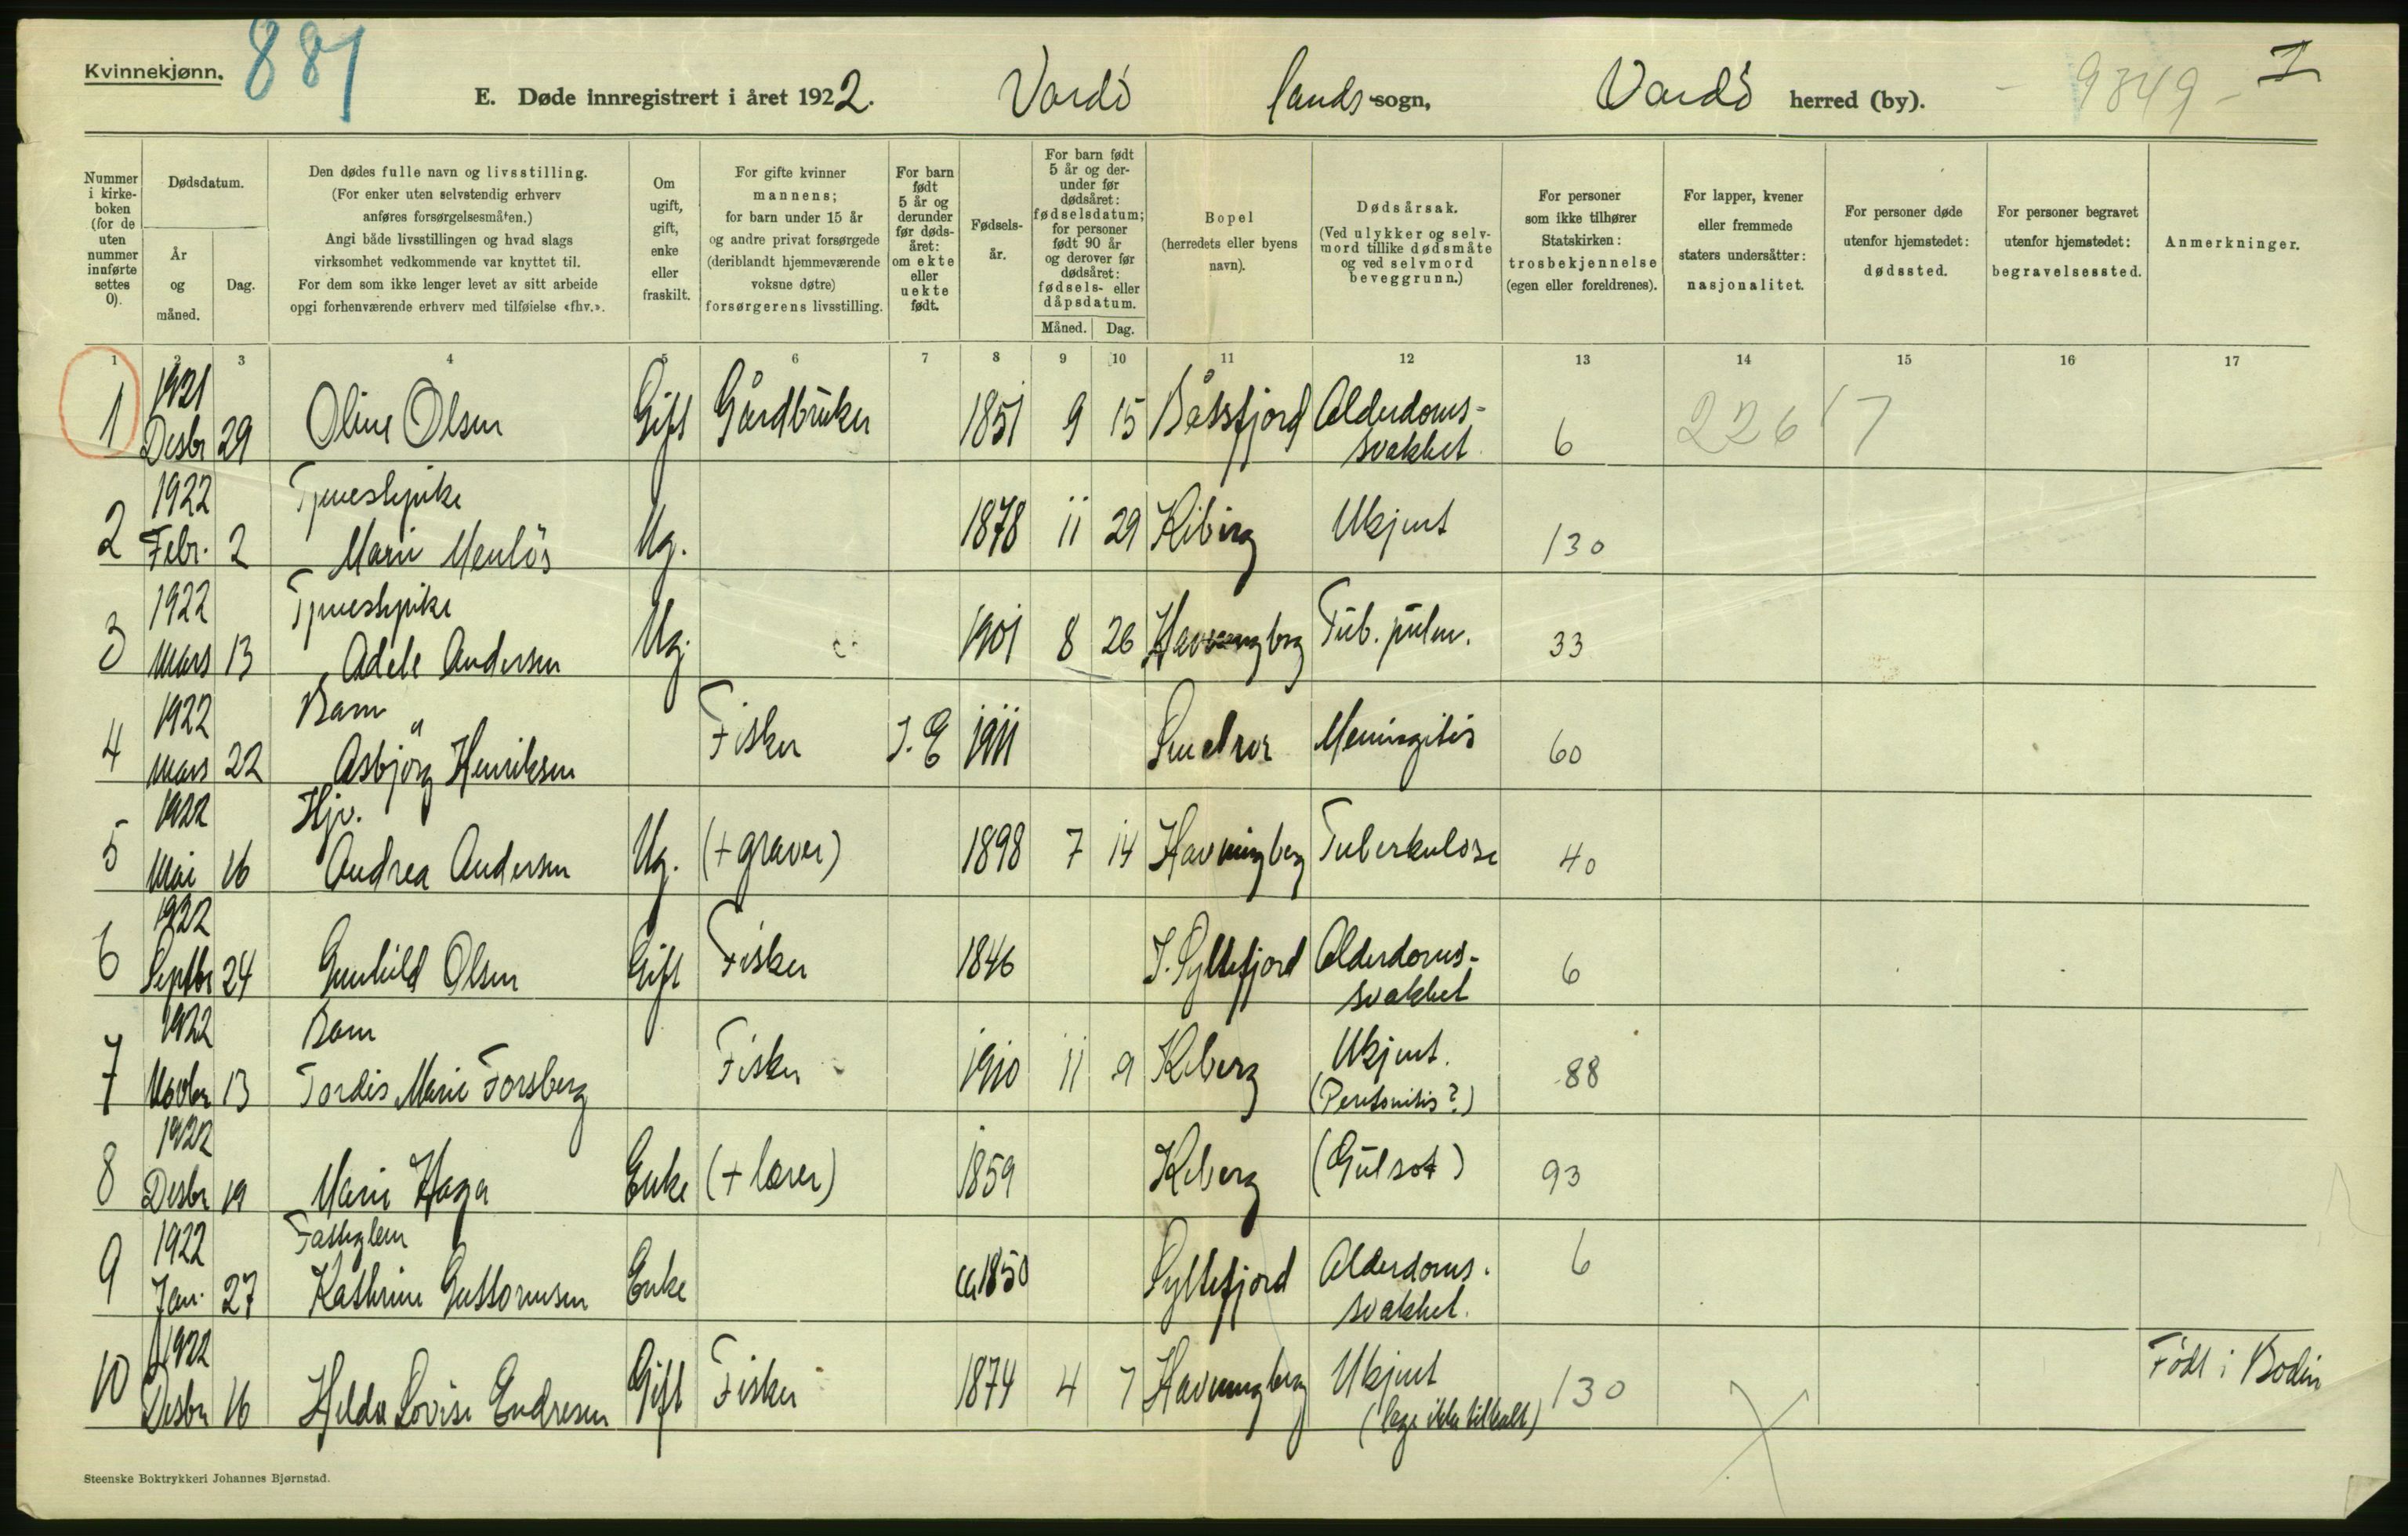 Kvinnekjønn. 887
E. Døde innregistrert i året 1922. Vardö lands-sogn, Vardö herred (by). 9849 - I
Nummer i kirke-boken (for de uten nummer innførte settes 0).
Dødsdatum.
År og måned.
Dag.
Den dødes fulle navn og livsstilling.
(For enker uten selvstendig erhverv
anføres forsørgelsesmåten.)
Angi både livsstillingen og hvad slags
virksomhet vedkommende var knyttet til.
For dem som ikke lenger levet av sitt arbeide
opgi forhenværende erhverv med tilføielse «fhv.».
Om
ugift,
gift,
enke
eller
fraskilt.
For gifte kvinner
mannens;
for barn under 15 år
og andre privat forsørgede
(deriblandt hjemmeværende
voksne døtre)
forsørgerens livsstilling.
For barn
født
5 år og
derunder
før døds-
året:
om ekte
eller
uekte
født.
Fødsels-
år.
For barn født
5 år og der-
under før
dødsåret:
fødselsdatum;
for personer
født 90 år
og derover før
dødsåret:
fødsels- eller
dåpsdatum.
Måned. Dag.
Bopel
(herredets eller byens
navn).
Dødsårsak.
(Ved ulykker og selv-
mord tillike dødsmåte
og ved selvmord
beveggrunn.)
For personer
som ikke tilhører
Statskirken:
trosbekjennelse
(egen eller foreldrenes).
For lapper, kvener
eller fremmede
staters undersåtter:
nasjonalitet.
For personer døde
utenfor hjemstedet:
dødssted.
For personer begravet
utenfor hjemstedet:
begravelsessted.
Anmerkninger.
1 2 3 4 5 6 7 8 9 10 11 12 13 14 15 16 17
1921
1 Desbr 29 Oline Olsen Gift Gårdbruker 1851 9 15 Båtsfjord Alderdoms-
svakhet 6 226 17
1922 Tjenestepike
2 Febr. 2 Marie Menlös Ug. 1878 11 29 Kiberg Ukjent 130
1922 Tjenestepike
3 Mars 13 Adele Andersen Ug. 1901 8 26 Havningberg Tub. pulm. 33
1922 Barn
4 Mars 22 Asbjörg Henriksen Fisker I. E 1911 Smelror Meningitis 60
1922 Hjv.
5 Mai 16 Andrea Andersen Ug. (+ graver) 1898 7 14 Havningberg Tuberkulose 40
1922
6 Septbr 24 Gunhild Olsen Gift Fisker 1846 I. Syltefjord Alderdoms-
svakhet 6
1922 Barn
7 Novbr 13 Tordis Marie Forsberg Fisker 1910 11 9 Kiberg Ukjent.
(Peritonitis?) 88
1922
8 Desbr 19 Marie Haga Enke (+ lærer) 1859 Kiberg (Gulsot) 93
1922 Fattiglem
9 Jan. 27 Kathrine Guttormsen Enke ca 1850 Syltefjord Alderdoms-
svakhet. 6
1922
10 Desbr 16 Hilda Lovise Endresen Gift Fisker 1874 4 7 Havningberg Ukjent
(læge ikke tilkalt) 130 Født i Bodin
Steenske Boktrykkeri Johannes Bjørnstad.